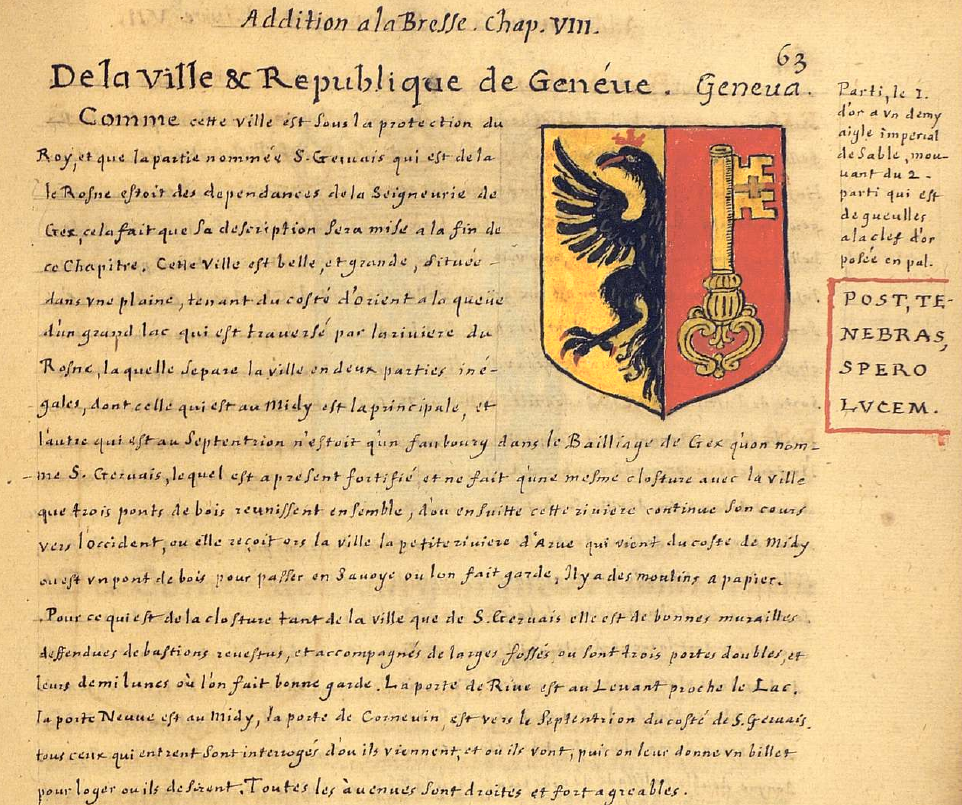 Addition a la Bresse. Chap. VIII.
63
De la Ville & Republique de Genéue. Geneua.
Comme cette ville est sous la protection du
Roy, et que la partie nommée S. Geruais qui est de la
le Rosne estoit des dependances de la Seigneurie de
Gex, cela fait que sa description sera mise a la fin de
ce Chapitre. Cette Ville est belle, et grande, située -
dans vne plaine, tenant du costé d'orient a la queüe
d'un grand lac qui est trauersé par la riuiere du
Rosne, laquelle separe la ville en deux parties iné-
gales, dont celle qui est au Midy est la principale, et
l'autre qui est au Septentrion n'estoit qu'un fauboury dans le Bailliage de Gex qu'on nom-
me S. Geruais, lequel est a present fortifié et ne fait qu'une mesme closture auec la ville
que trois ponts de bois reunissent ensemble, d'ou ensuitte cette riuiere continue son cours
vers l'occident, ou elle reçoit ors la ville la petite riuiere d'Arue qui vient du coste de Midy
ou est vn pont de bois pour passer en Sauoye ou l'on fait garde, Il y a des moulins a papier.
Pour ce qui est de la closture tant de la ville que de S. Geruais elle est de bonnes murailles
deffendues de bastions reuestus, et accompagnés de larges fossés ou sont trois portes doubles, et
leurs demi lunes où l'on fait bonne garde. La porte de Riue est au Leuant proche le Lac,
la porte Neuue est au Midy, la porte de Corneuin, est vers le Septentrion du costé de S. Geruais.
tous ceux qui entrent sont interrogés d'ou ils viennent, et ou ils vont, puis on leur donne vn billet
pour loger ou ils desirent. Toutes les auenues sont droites et fort agreables.
Parti, le 1.
d'or a vn demy
aigle imperial
de Sable, mou-
uant du 2 -
parti qui est
de gueulles
a la clef d'or
posée en pal.
POST, TE-
NEBRAS,
SPERO
LVCEM.